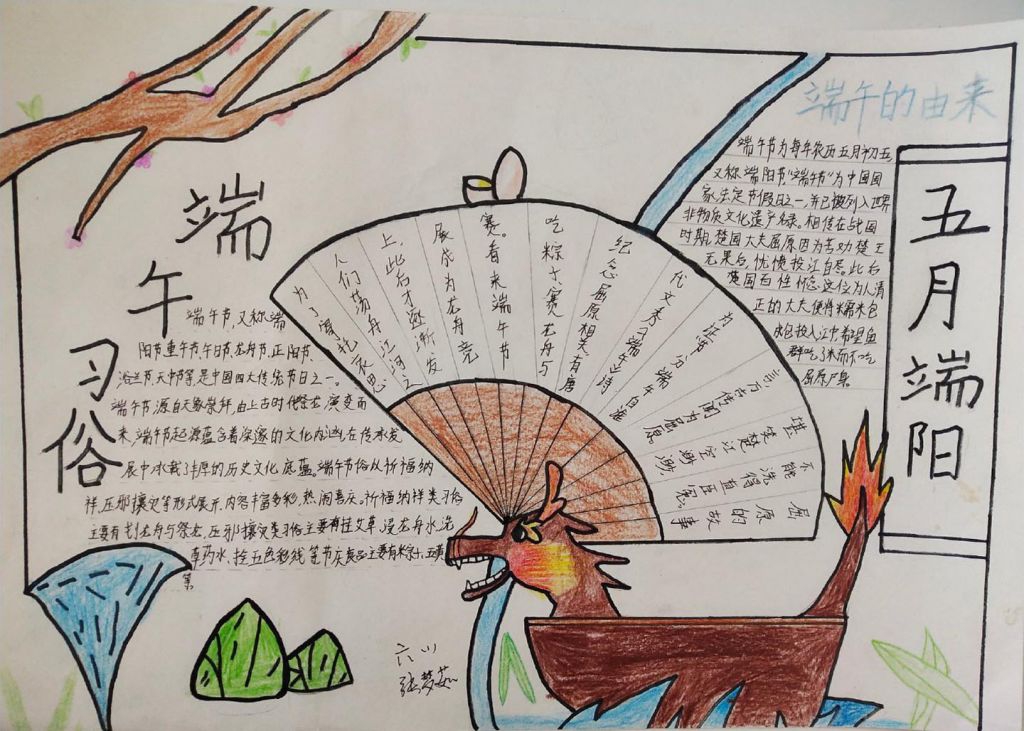 端午的由来
端午节为每年农历五月初五,
又称端阳节"端午节"为中国国
家法定节假日之一,并已被列入世界
非物质文化遗产名录。相传在战国
时期,楚国大夫屈原因为苦劝楚王
无果后,忧愤投江自尽。此后
楚国百姓怀念这位为人清
正的大夫便将糯米包
投入江中,希望鱼
群吃了米而不吃
屈原尸集
五月端阳
端午习俗
端午节,又称端
阳节重午节,午日节,龙舟节,正阳节、
浴兰节,天中节等是中国四大传统节日之一。
端午节,源自天象崇拜,由上古时代祭龙演变而
来,端午节起源蕴含着深邃的文化内涵,在传承发
展中承载了丰厚的历史文化底蕴。端午节俗以祈福纳
祥,压邪攘灾等形式展开,内容丰富多彩,热闹喜庆。祈福纳祥类习俗
主要有扒龙舟与祭龙,压邪攘灾类习俗主要有挂艾草,浸龙舟水,洗
草药水、拴五色彩线等节庆食品主要有粽子,五黄
等
屈原的故事
不能洗得直臣冤
堪笑楚江空渺渺
言万古传闻为屈原
为 节分端午自谁
代文秀《端午》诗
纪念屈原相关有唐
吃粽子,赛龙舟与
赛。看来端午节
展成为龙舟竞
上,此后才逐渐发
人们荡舟江河之
为了寄托哀思
六
张梦茹